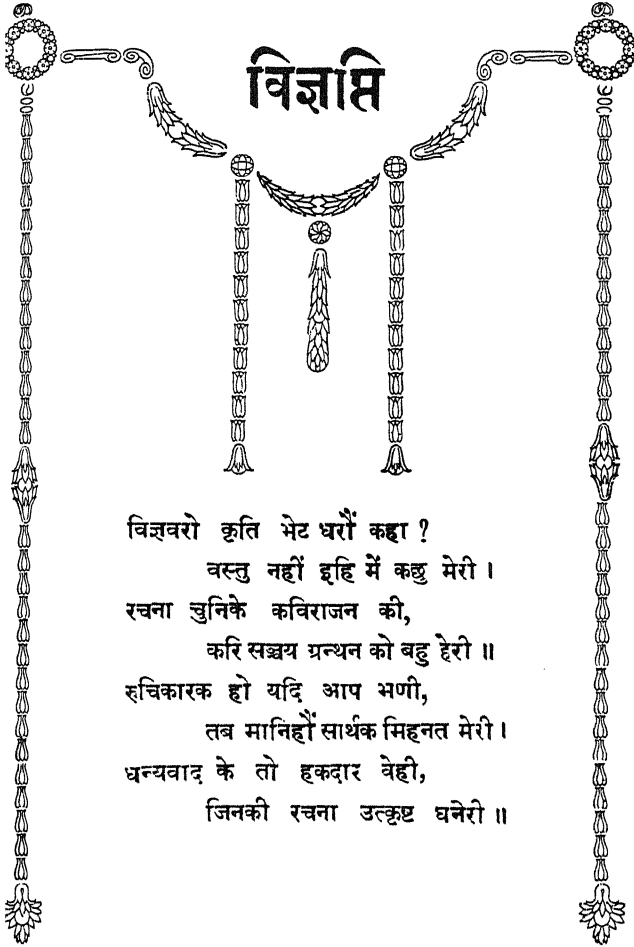 विज्ञप्ति
विज्ञवरो कृति भेट धरौं कहा ?
वस्तु नहीं इहि में कछु मेरी ।
रचना चुनिके कविराजन की,
करि सञ्चय ग्रन्थन को बहु हेरी ॥
रुचिकारक हो यदि आप भणी,
तब मानिहौं सार्थक मिहनत मेरी ।
धन्यवाद के तो हकदार वेही,
जिनकी रचना उत्कृष्ट घनेरी ॥